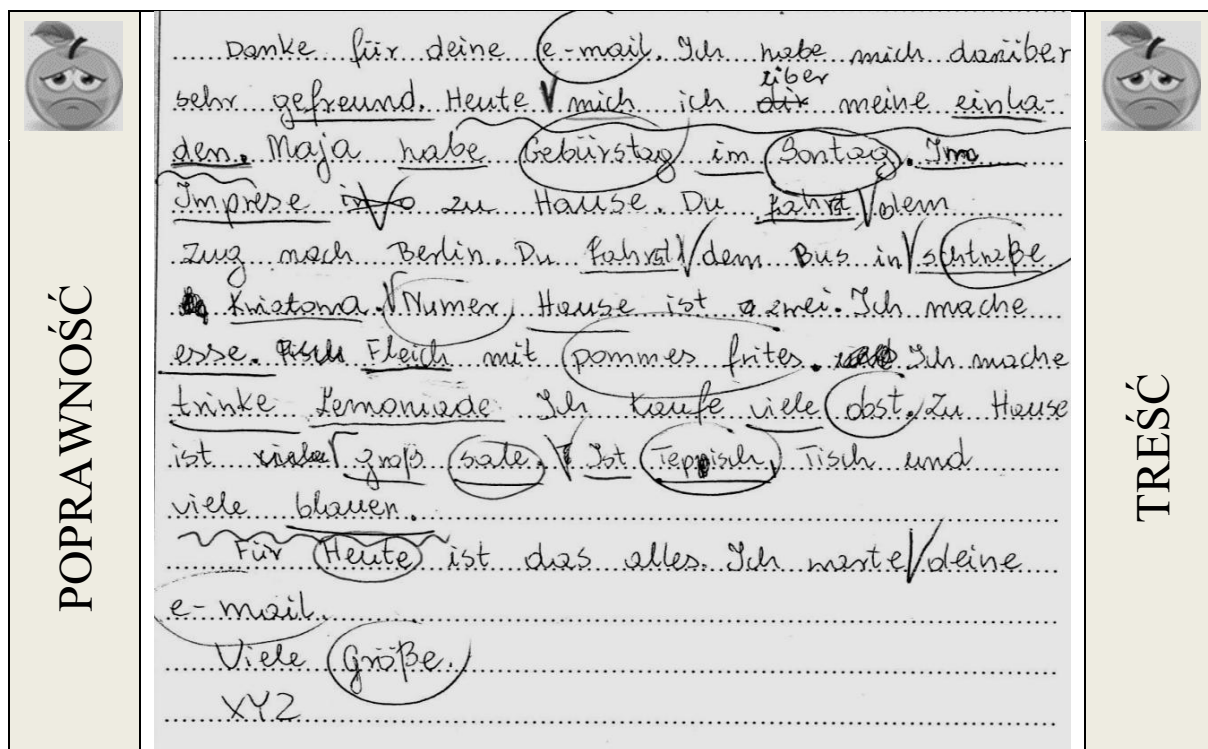 POPRAWNOŚĆ
Danke für deine e-mail. Ich habe mich darüber
sehr gefreund. Heute mich ich dir über meine einla-
den. Maja habe Gebürstag im Sontag. Im
Imprese zu Hause. Du fahrst dem
Zug nach Berlin. Du fahrst dem Bus in schtraße
Kwiatowa. Numer Hause ist zwei. Ich mache
esse. Fisch Fleich mit pommes frites. Ich mache
trinke Lemoniade Ich kaufe viele obst. Zu Hause
ist groß sale. Ist Teppisch, Tisch und
viele blauen.
Für Heute ist das alles. Ich warte deine
e-mail.
Viele Größe.
XYZ
TREŚĆ